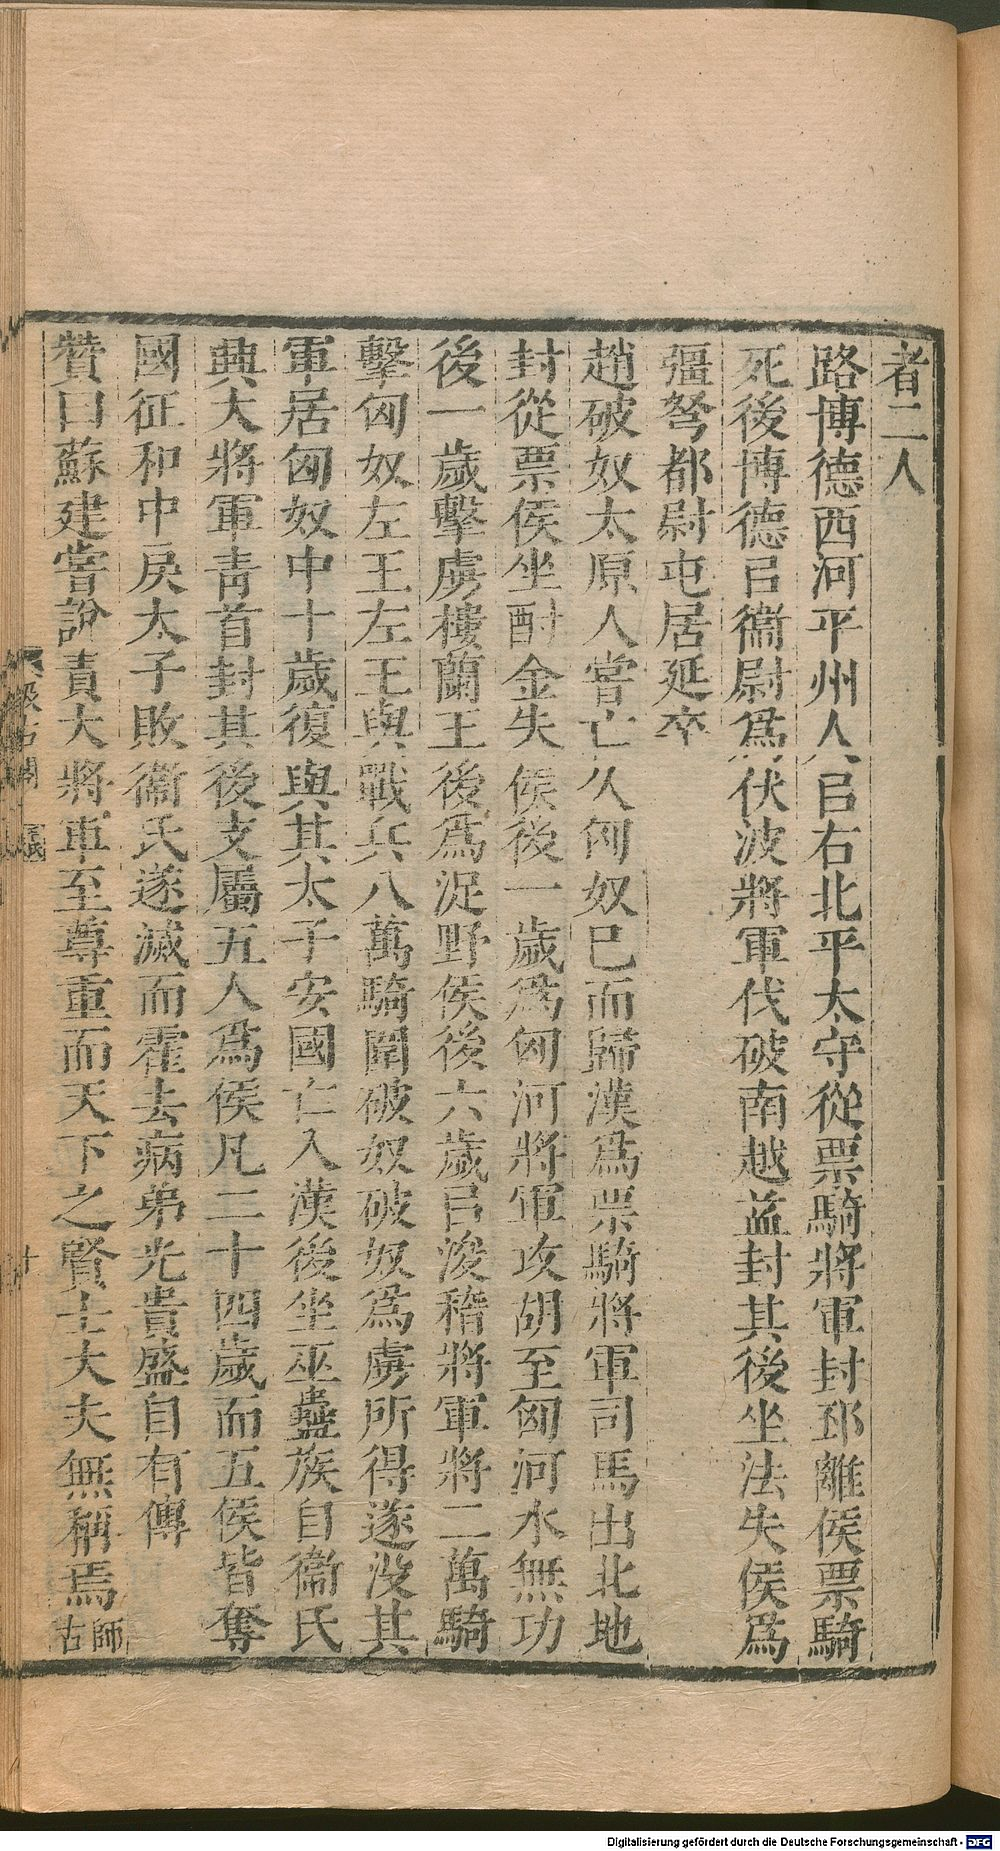 者二人
路博德西河平州人㠯右北平太守從票騎將軍封邳離侯票騎
死後博德㠯衞尉爲伏波將軍伐破南越益封其後坐法失侯爲
彊弩都尉屯居延卒
趙破奴太原人嘗亡入匈奴已而歸漢爲票騎將軍司馬出北地
封從票侯坐酎金失侯後一歲爲匈河將軍攻胡至匈河水無功
後一歲擊虜樓蘭王後爲浞野侯後六歲㠯浚稽將軍將二萬騎
擊匈奴左王左王與戰兵八萬騎圍破奴破奴爲虜所得遂没其
軍居匈奴中十歲復與其太子安國亡入漢後坐巫蠱族自衞氏
興大將軍靑首封其後支屬五人爲侯凡二十四歲而五侯皆奪
國征和中戾太子敗衞氏遂滅而霍去病弟光貴盛自有傳
贊曰蘇建嘗說責大將軍至尊重而天下之賢士大夫無稱焉師古
汲古閣
十
Digitalisierung gefördert durch die Deutsche Forschungsgemeinschaft - DFG